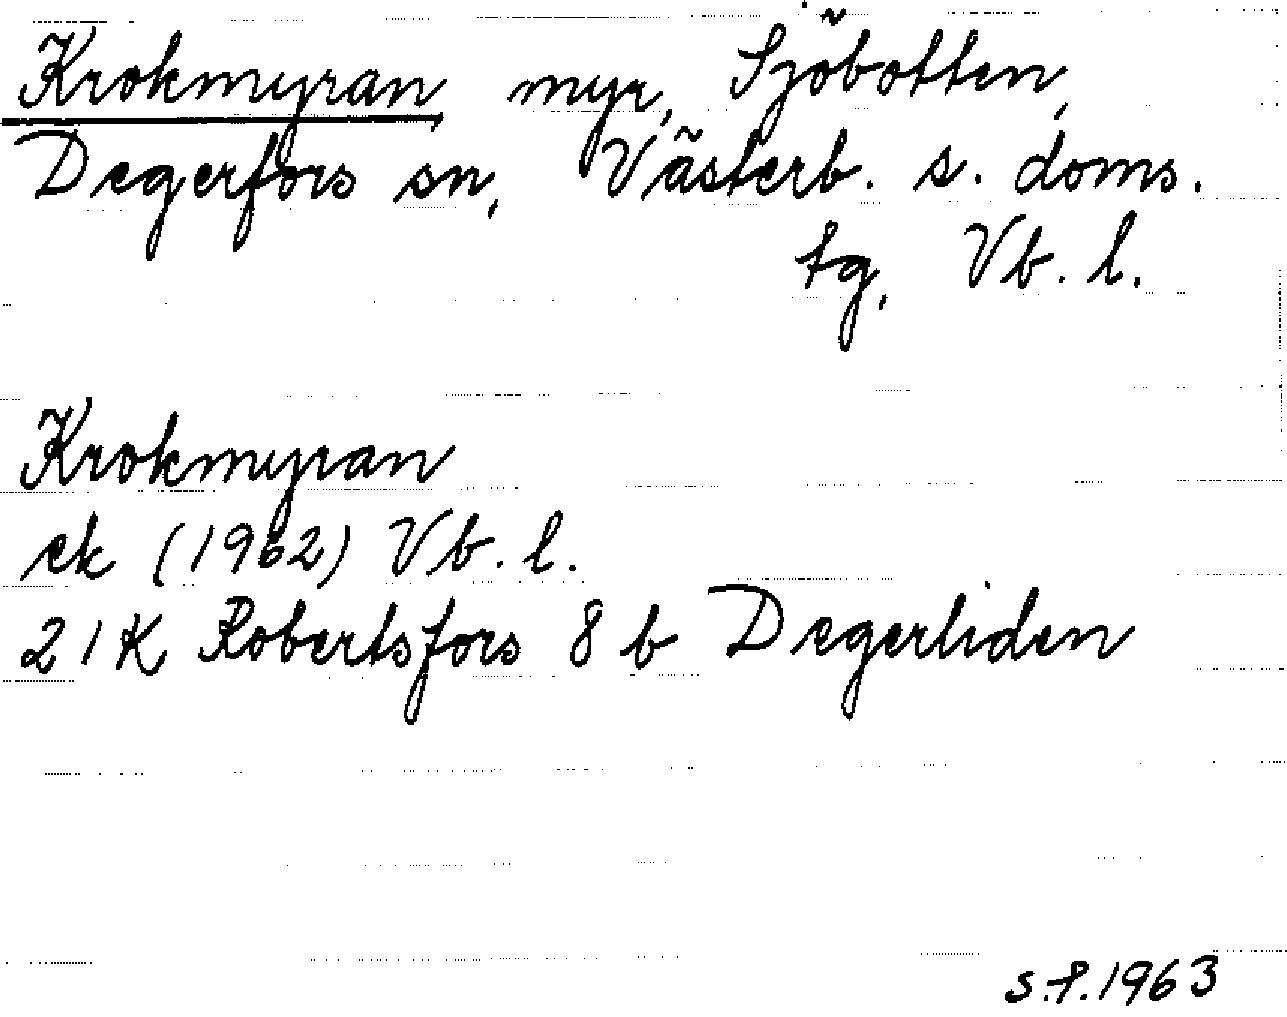 Krokmyran myr, Sjöbotten,
Degerfors sn, Västerb. s. doms.
tg, Vb. l.
Krokmyran
ek (1962) Vb. l.
21K Robertsfors 8 b Degerliden
s.f. 1963